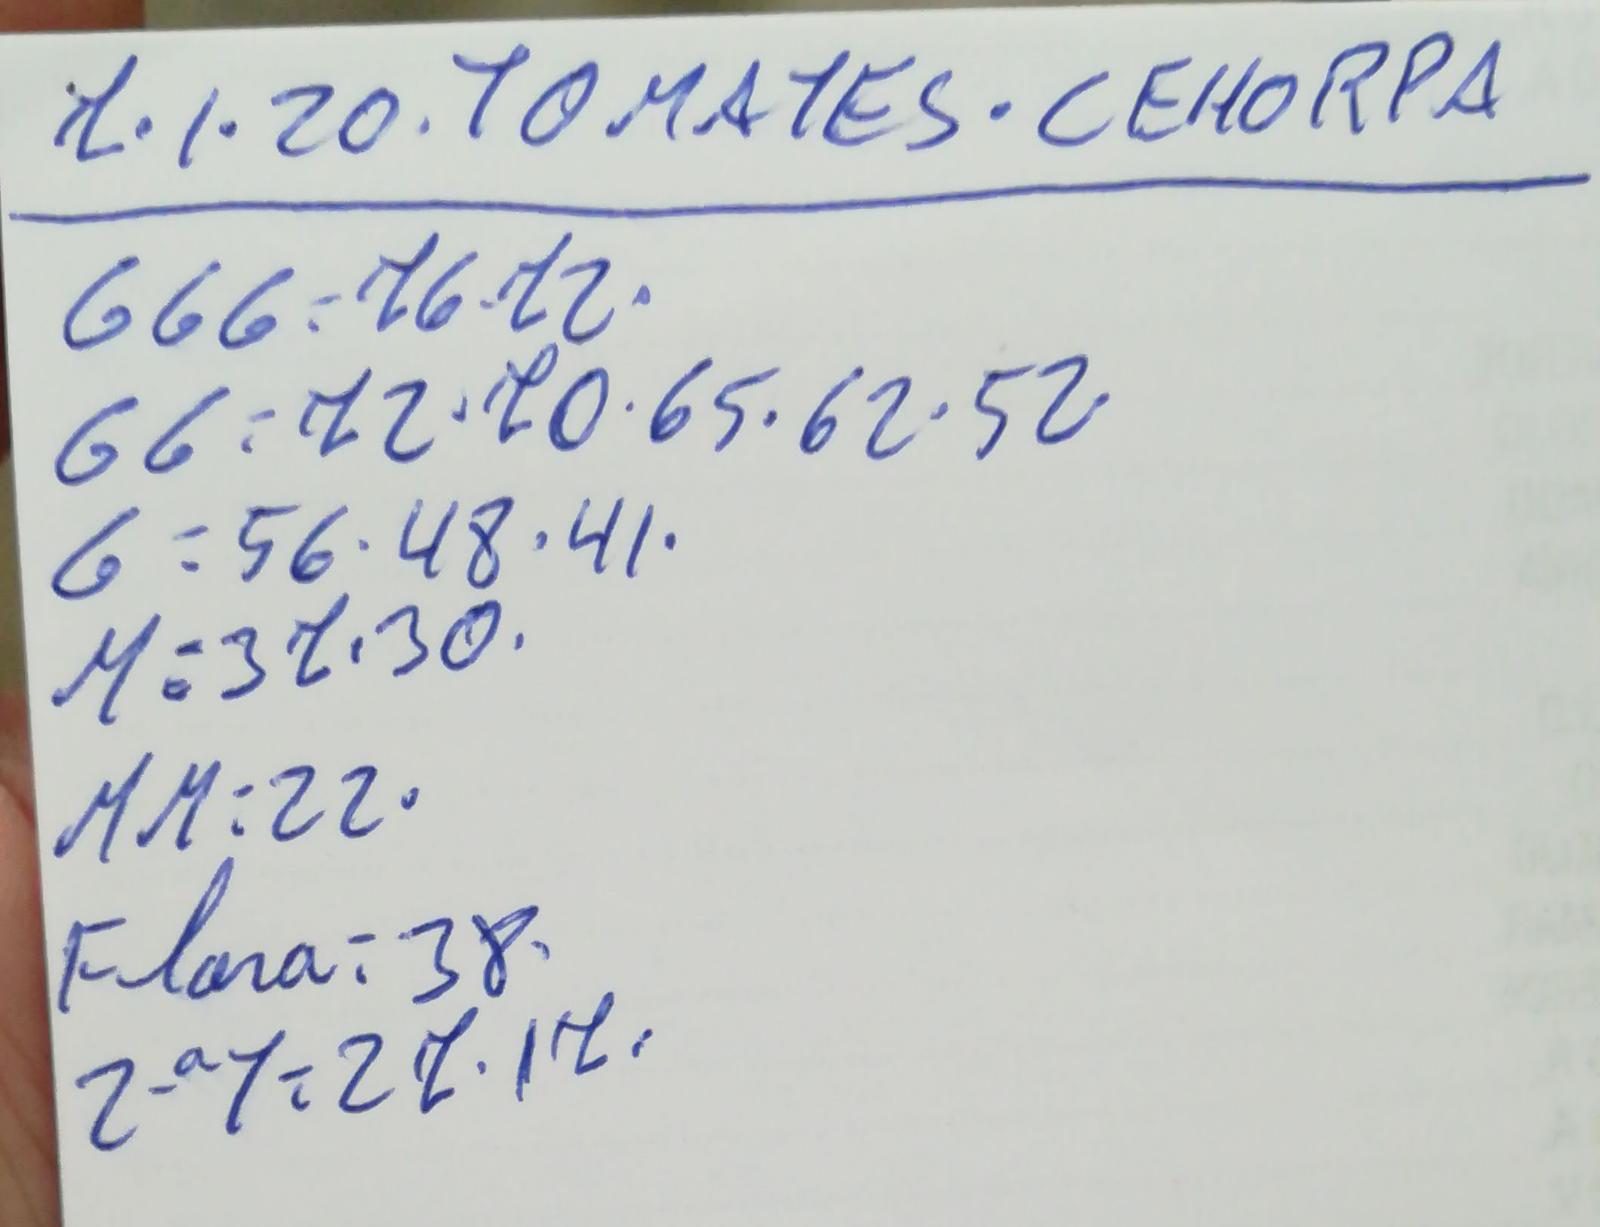 7.1.20.TOMATES.CEHORPA
GGG=76.72.
GG=72.70.65.62.52.
G=56.48.41.
M=37.30.
MM=22.
Flora=38.
2-ªT=27.17.